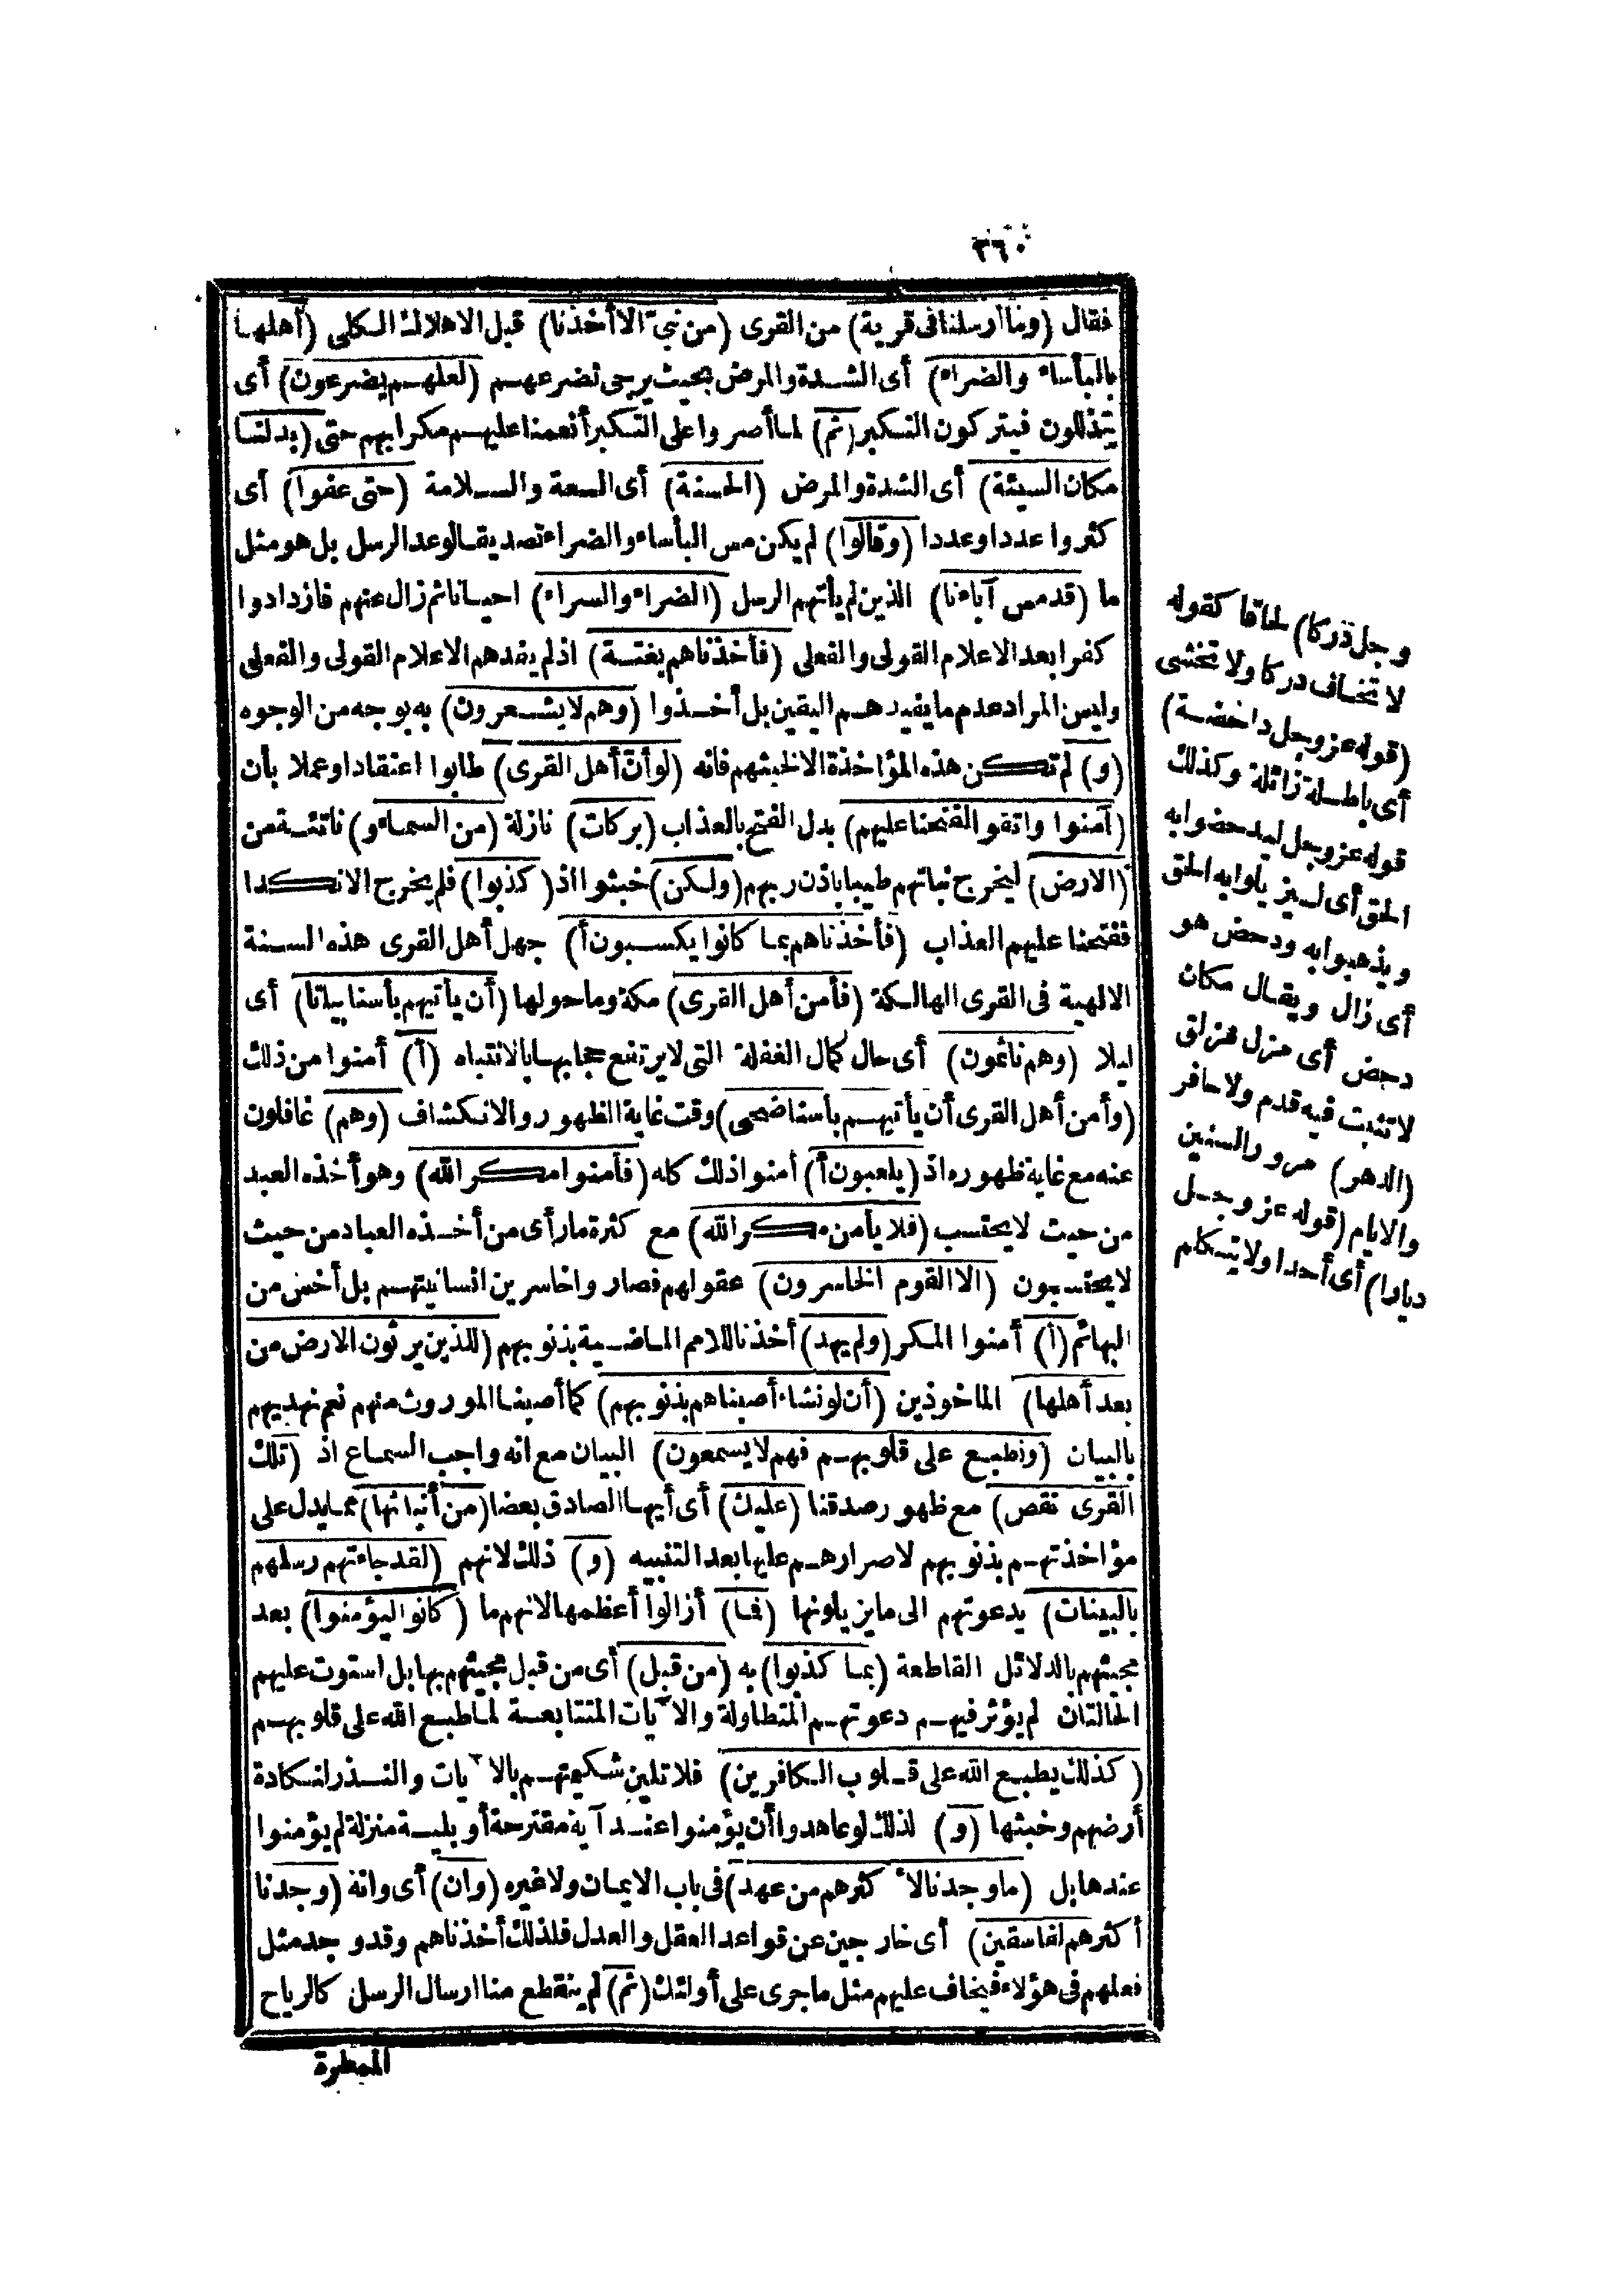 ٣٦٠
فقال (وما أرسلنا فى قرية) من القرى (من نبىّ الا أخذنا) قبل الاهلاك الكلى (أهلها
بالبأساء والضراء) أى الشدة والمرض بحيث يرجى تضرعهم (لعلهم يضرعون) أى
يتذللون فيتركون التكبر (ثم) لما أصروا على التكبر أنعمنا عليهم مكرا بهم حتى (بدلنا
مكان السيئة) أى الشدة والمرض (الحسنة) أى السعة والسلامة (حتى عفوا) أى
كثروا عددا وعددا (وقالوا) لم يكن مس البأساء والضراء تصديقا لوعد الرسل بل هو مثل
ما (قد مس آباءنا) الذين لم يأتهم الرسل (الضراء والسراء) احيانا ثم زال عنهم فازدادوا
كفرا بعد الاعلام القولى والفعلى (فأخذناهم بغتة) اذ لم يفدهم الاعلام القولى والفعلى
وليس المراد عدم ما يفيدهم اليقين بل أخذوا (وهم لا يشعرون) به بوجه من الوجوه
(و) لم تكن هذه المؤاخذة الا لخبثهم فانه (لو أنّ أهل القرى) طابوا اعتقادا وعملا بأن
(آمنوا واتقوا لفتحنا عليهم) بدل الفتح بالعذاب (بركات) نازلة (من السماء و) ناتئة من
(الارض) ليخرج نباتهم طيبا باذن ربهم (ولكن) خبثوا اذ (كذبوا) فلم يخرج الا نكدا
ففتحنا عليهم العذاب (فأخذناهم بما كانوا يكسبون أ) جهل أهل القرى هذه السنة
الالهية فى القرى الهالكة (فأمن أهل القرى) مكة وما حولها (أن يأتيهم بأسنا بياتا) أى
ليلا (وهم نائمون) أى حال كمال الغفلة التى لا يرتفع حجابها بالانتباه (أ) أمنوا من ذلك
(وأمن أهل القرى أن يأتيهم بأسنا ضحى) وقت غاية الظهور والانكشاف (وهم) غافلون
عنه مع غاية ظهوره اذ (يلعبون أ) أمنوا ذلك كله (فأمنوا مكر الله) وهو أخذه العبد
من حيث لا يحتسب (فلا يأمن مكر الله) مع كثرة ما رأى من أخذه العباد من حيث
لا يحتسبون (الا القوم الخاسرون) عقولهم فصاروا خاسرين انسانيتهم بل أخس من
البهائم (أ) أمنوا المكر (ولم يهد) أخذنا للامم الماضية بذنوبهم (للذين يرثون الارض من
بعد أهلها) المأخوذين (أن لو نشاء أصبناهم بذنوبهم) كما أصبنا الموروث منهم نعم نهديهم
بالبيان (ونطبع على قلوبهم فهم لا يسمعون) البيان مع انه واجب السماع اذ (تلك
القرى نقص) مع ظهور صدقنا (عليك) أى أيها الصادق بعضا (من أنبائها) مما يدل على
مؤاخذتهم بذنوبهم لاصرارهم عليها بعد التنبيه (و) ذلك لانهم (لقد جاءتهم رسلهم
بالبينات) يدعوتهم الى ما يزيلونها (فما) أزالوا أعظمها لانهم ما (كانوا ليؤمنوا) بعد
مجيئهم بالدلائل القاطعة (بما كذبوا) به (من قبل) أى من قبل مجيئهم بها بل استوت عليهم
الحالتان لم يؤثر فيهم دعوتهم المتطاولة والآيات المتتابعة لما طبع الله على قلوبهم
(كذلك يطبع الله على قلوب الكافرين) فلا تلين شكيمتهم بالآيات والنذر لنكادة
أرضهم وخبثها (و) لذلك لو عاهدوا أن يؤمنوا عند آية مقترحة أو بلية منزلة لم يؤمنوا
عندها بل (ما وجدنا لأكثرهم من عهد) فى باب الايمان ولا غيره (وان) أى وانه (وجدنا
أكثرهم لفاسقين) أى خارجين عن قواعد العقل والعدل فلذلك أخذناهم وقد وجد مثل
فعلهم فى هؤلاء فيخاف عليهم مثل ما جرى على أولئك (ثم) لم ينقطع منا ارسال الرسل كالرياح
الممطرة
وجل دركا) لحاقا كقوله
لا تخاف دركا ولا تخشى
(قوله عز وجل داحضة)
أى باطلة زائلة وكذلك
قوله عز وجل ليدحضوا به
الحق أى ليزيلوا به الحق
ويذهبوا به ودحض هو
أى زال ويقال مكان
دحض أى مزل مزلق
لا تثبت فيه قدم ولا حافر
(الدهر) مرور السنين
والايام (قوله عز وجل
ديارا) أى أحدا ولا يتكلم